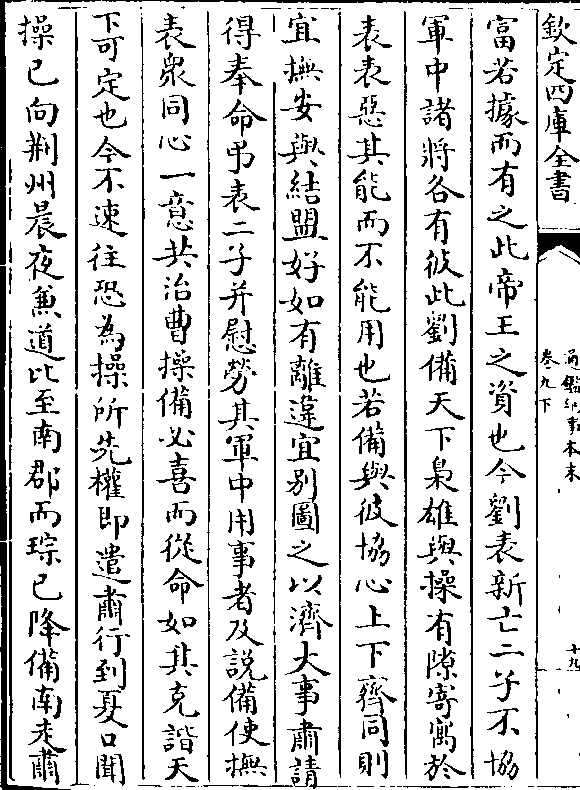 欽定四庫全書
通鑑紀事本末
卷九下
十九
富若據而有之此帝王之資也今劉表新亡二子不協
軍中諸將各有彼此劉備天下梟雄與操有隙寄寓於
表表惡其能而不能用也若備與彼協心上下齊同則
宜撫安與結盟好如有離違宜別圖之以濟大事肅請
得奉命弔表二子并慰勞其軍中用事者及說備使撫
表衆同心一意共治曹操備必喜而從命如其克諧天
下可定也今不速往恐為操所先權即遣肅行到夏口聞
操已向荆州晨夜兼道比至南郡而琮已降備南走肅